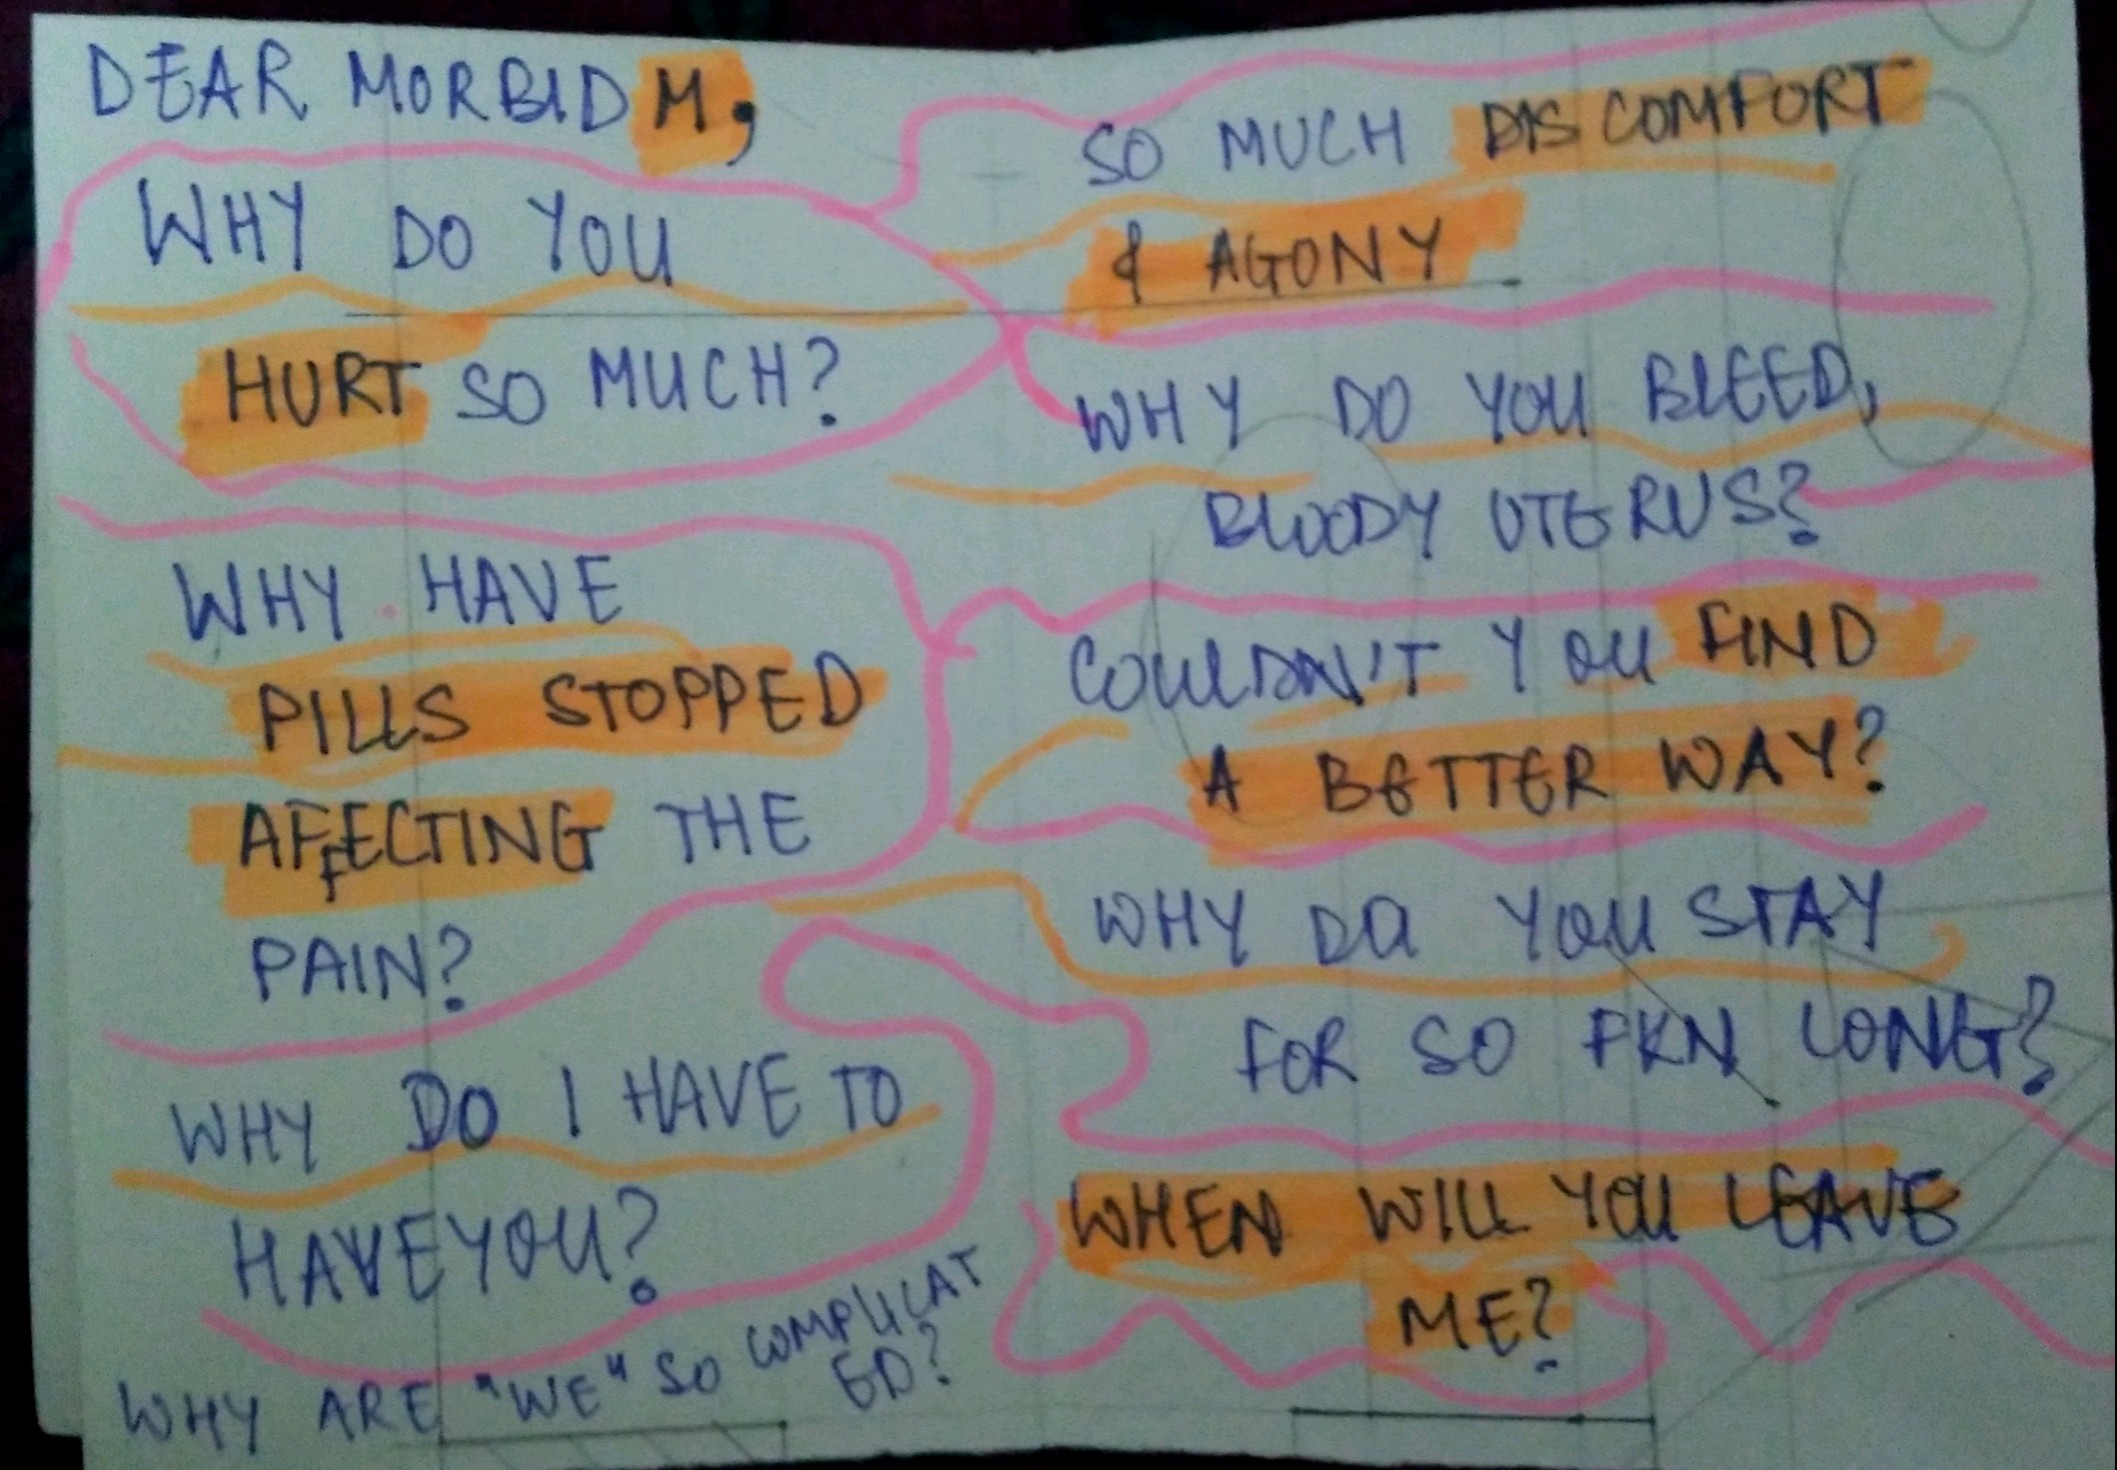 DEAR MORBID M,
WHY DO YOU
HURT SO MUCH?
WHY HAVE
PILLS STOPPED
AFFECTING THE
PAIN?
WHY DO I HAVE TO
HAVE YOU?
WHY ARE "WE" SO COMPLICAT
ED?
SO MUCH DISCOMFORT
& AGONY
WHY DO YOU BLEED,
BLOODY UTERUS?
COULDN'T YOU FIND
A BETTER WAY?
WHY DO YOU STAY
FOR SO FKN LONG?
WHEN WILL YOU LEAVE
ME?